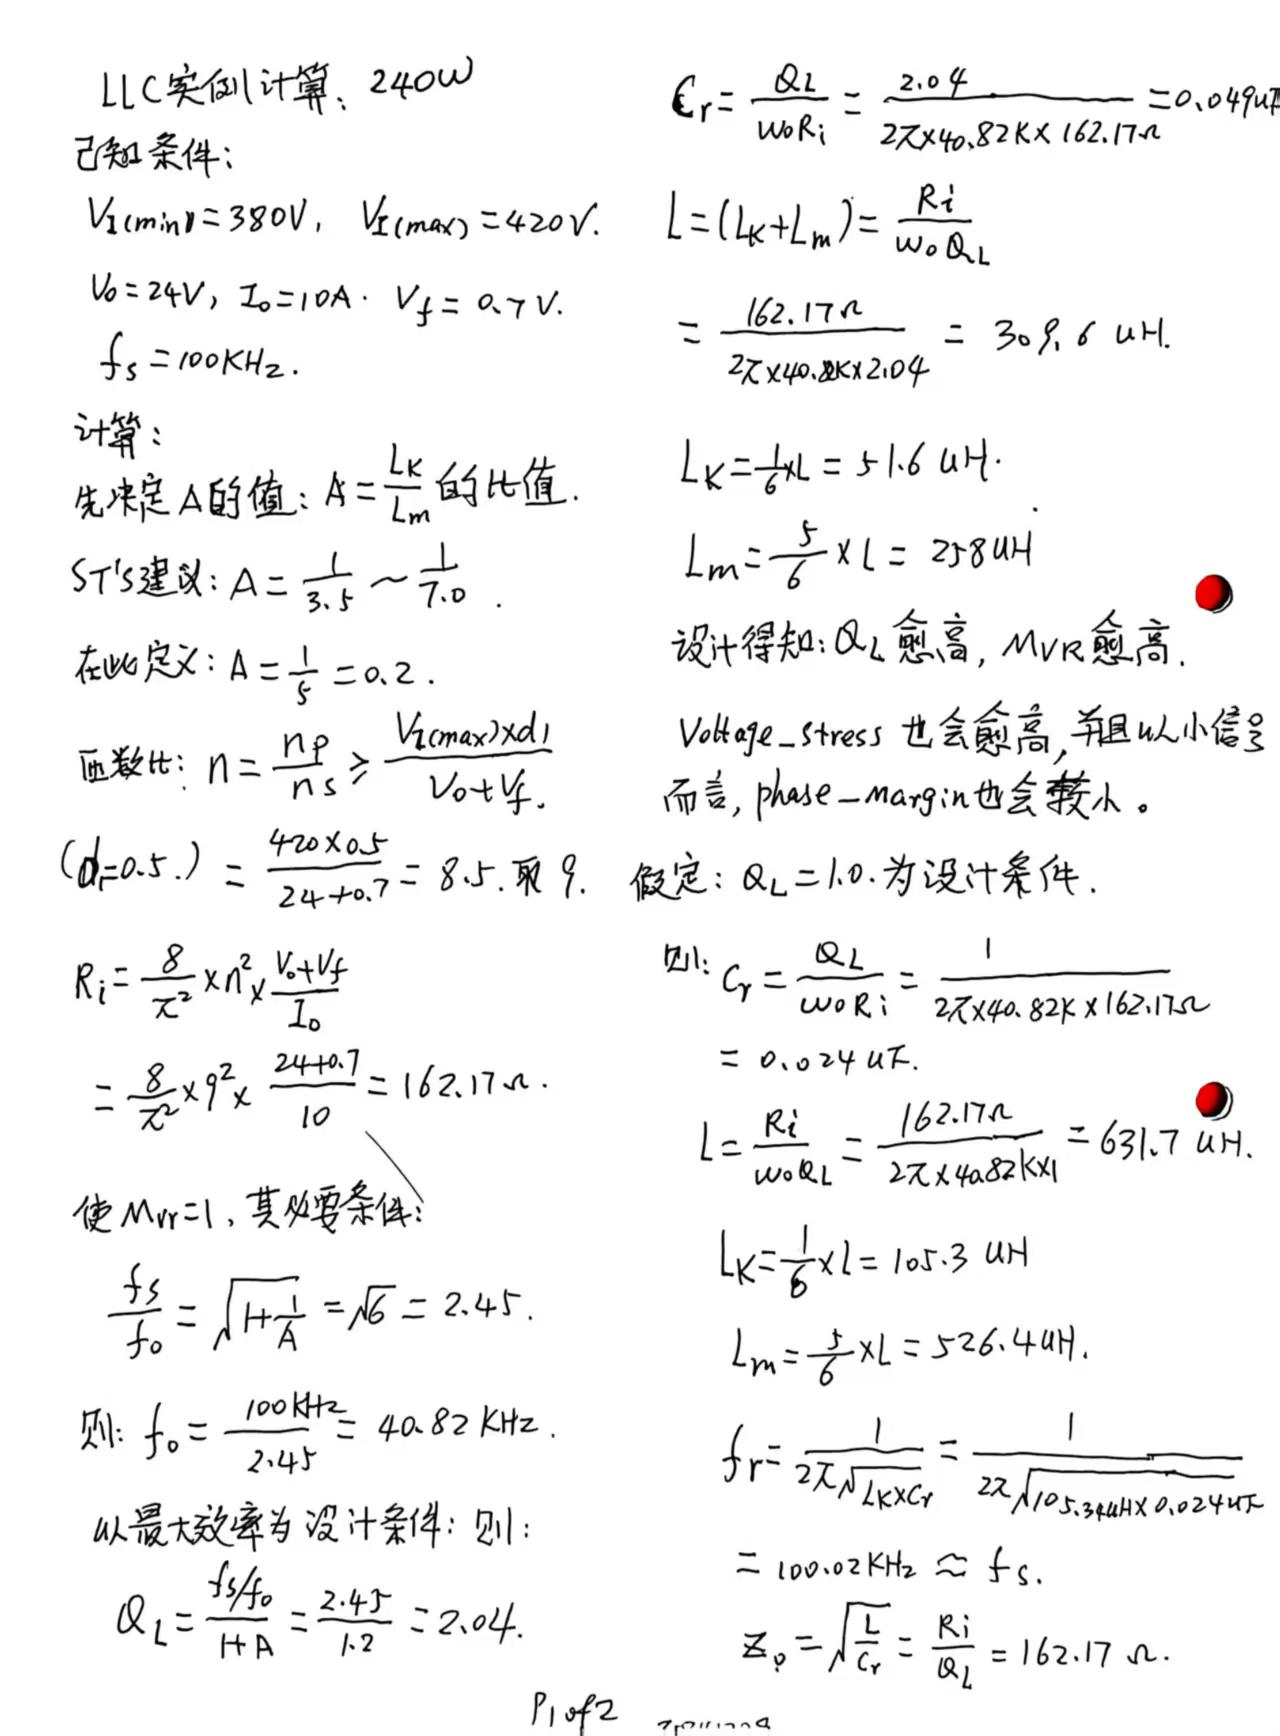 LLC实例计算: 240W
已知条件:
VI(min)=380V, VI(max)=420V.
Vo=24V, Io=10A. Vf=0.7V.
fs=100KHz.
计算:
先决定A的值: A=LK/Lm的比值.
ST'S建议: A=1/3.5~1/7.0.
在此定义: A=1/5=0.2.
匝数比: n=np/ns≥VI(max)×d1/Vo+Vf.
(d1=0.5.) =420×0.5/24+0.7=8.5.取9.
Ri=8/π²×n²×Vo+Vf/Io
=8/π²×9²×24+0.7/10=162.17Ω.
使Mvr=1, 其必要条件:
fs/fo=√1+1/A=√6=2.45.
则: fo=100KHz/2.45=40.82KHz.
以最大效率为设计条件: 则:
QL=fs/fo/1+A=2.45/1.2=2.04.
Cr=QL/woRi=2.04/2π×40.82K×162.17Ω=0.049uF
L=(LK+Lm)=Ri/woQL
=162.17Ω/2π×40.8K×2.04=309.6uH.
LK=1/6×L=51.6uH.
Lm=5/6×L=258uH
设计得知: QL愈高, MVR愈高.
Voltage_stress也会愈高,并且以小信号
而言, phase_margin也会较小。
假定: QL=1.0.为设计条件.
则: Cr=QL/woRi=1/2π×40.82K×162.17Ω
=0.024uF.
L=Ri/woQL=162.17Ω/2π×40.82K×1=631.7uH.
LK=1/6×L=105.3uH
Lm=5/6×L=526.4uH.
fr=1/2π√LK×Cr=1/2π√105.34uH×0.024uF
=100.02KHz≈fs.
Zo=√L/Cr=Ri/QL=162.17Ω.
P1 of 2